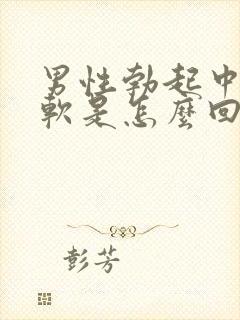 男性勃起中
軟是怎麼回
彭芳